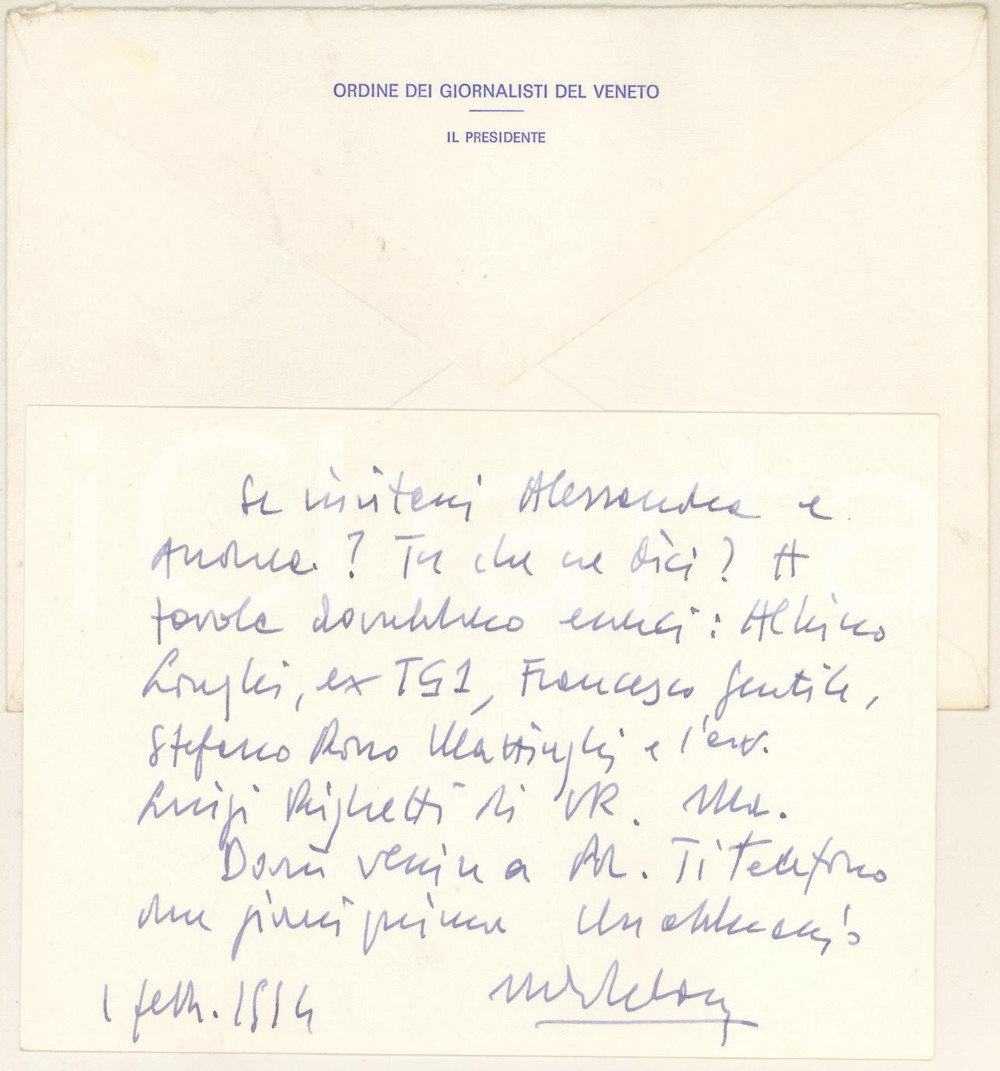 ORDINE DEI GIORNALISTI DEL VENETO
IL PRESIDENTE
Se invitassi Alessandra e
Andrea? Tu che ne dici? A
tavola dovrebbero esserci: Albino
Longhi, ex TG1, Francesco Gentile,
Stefano Rino e l'avv.
Luigi Righetti di VR.
Dovrei venire a Ti telefono
due giorni prima Un abbraccio
1 febb. 1994
iCharta